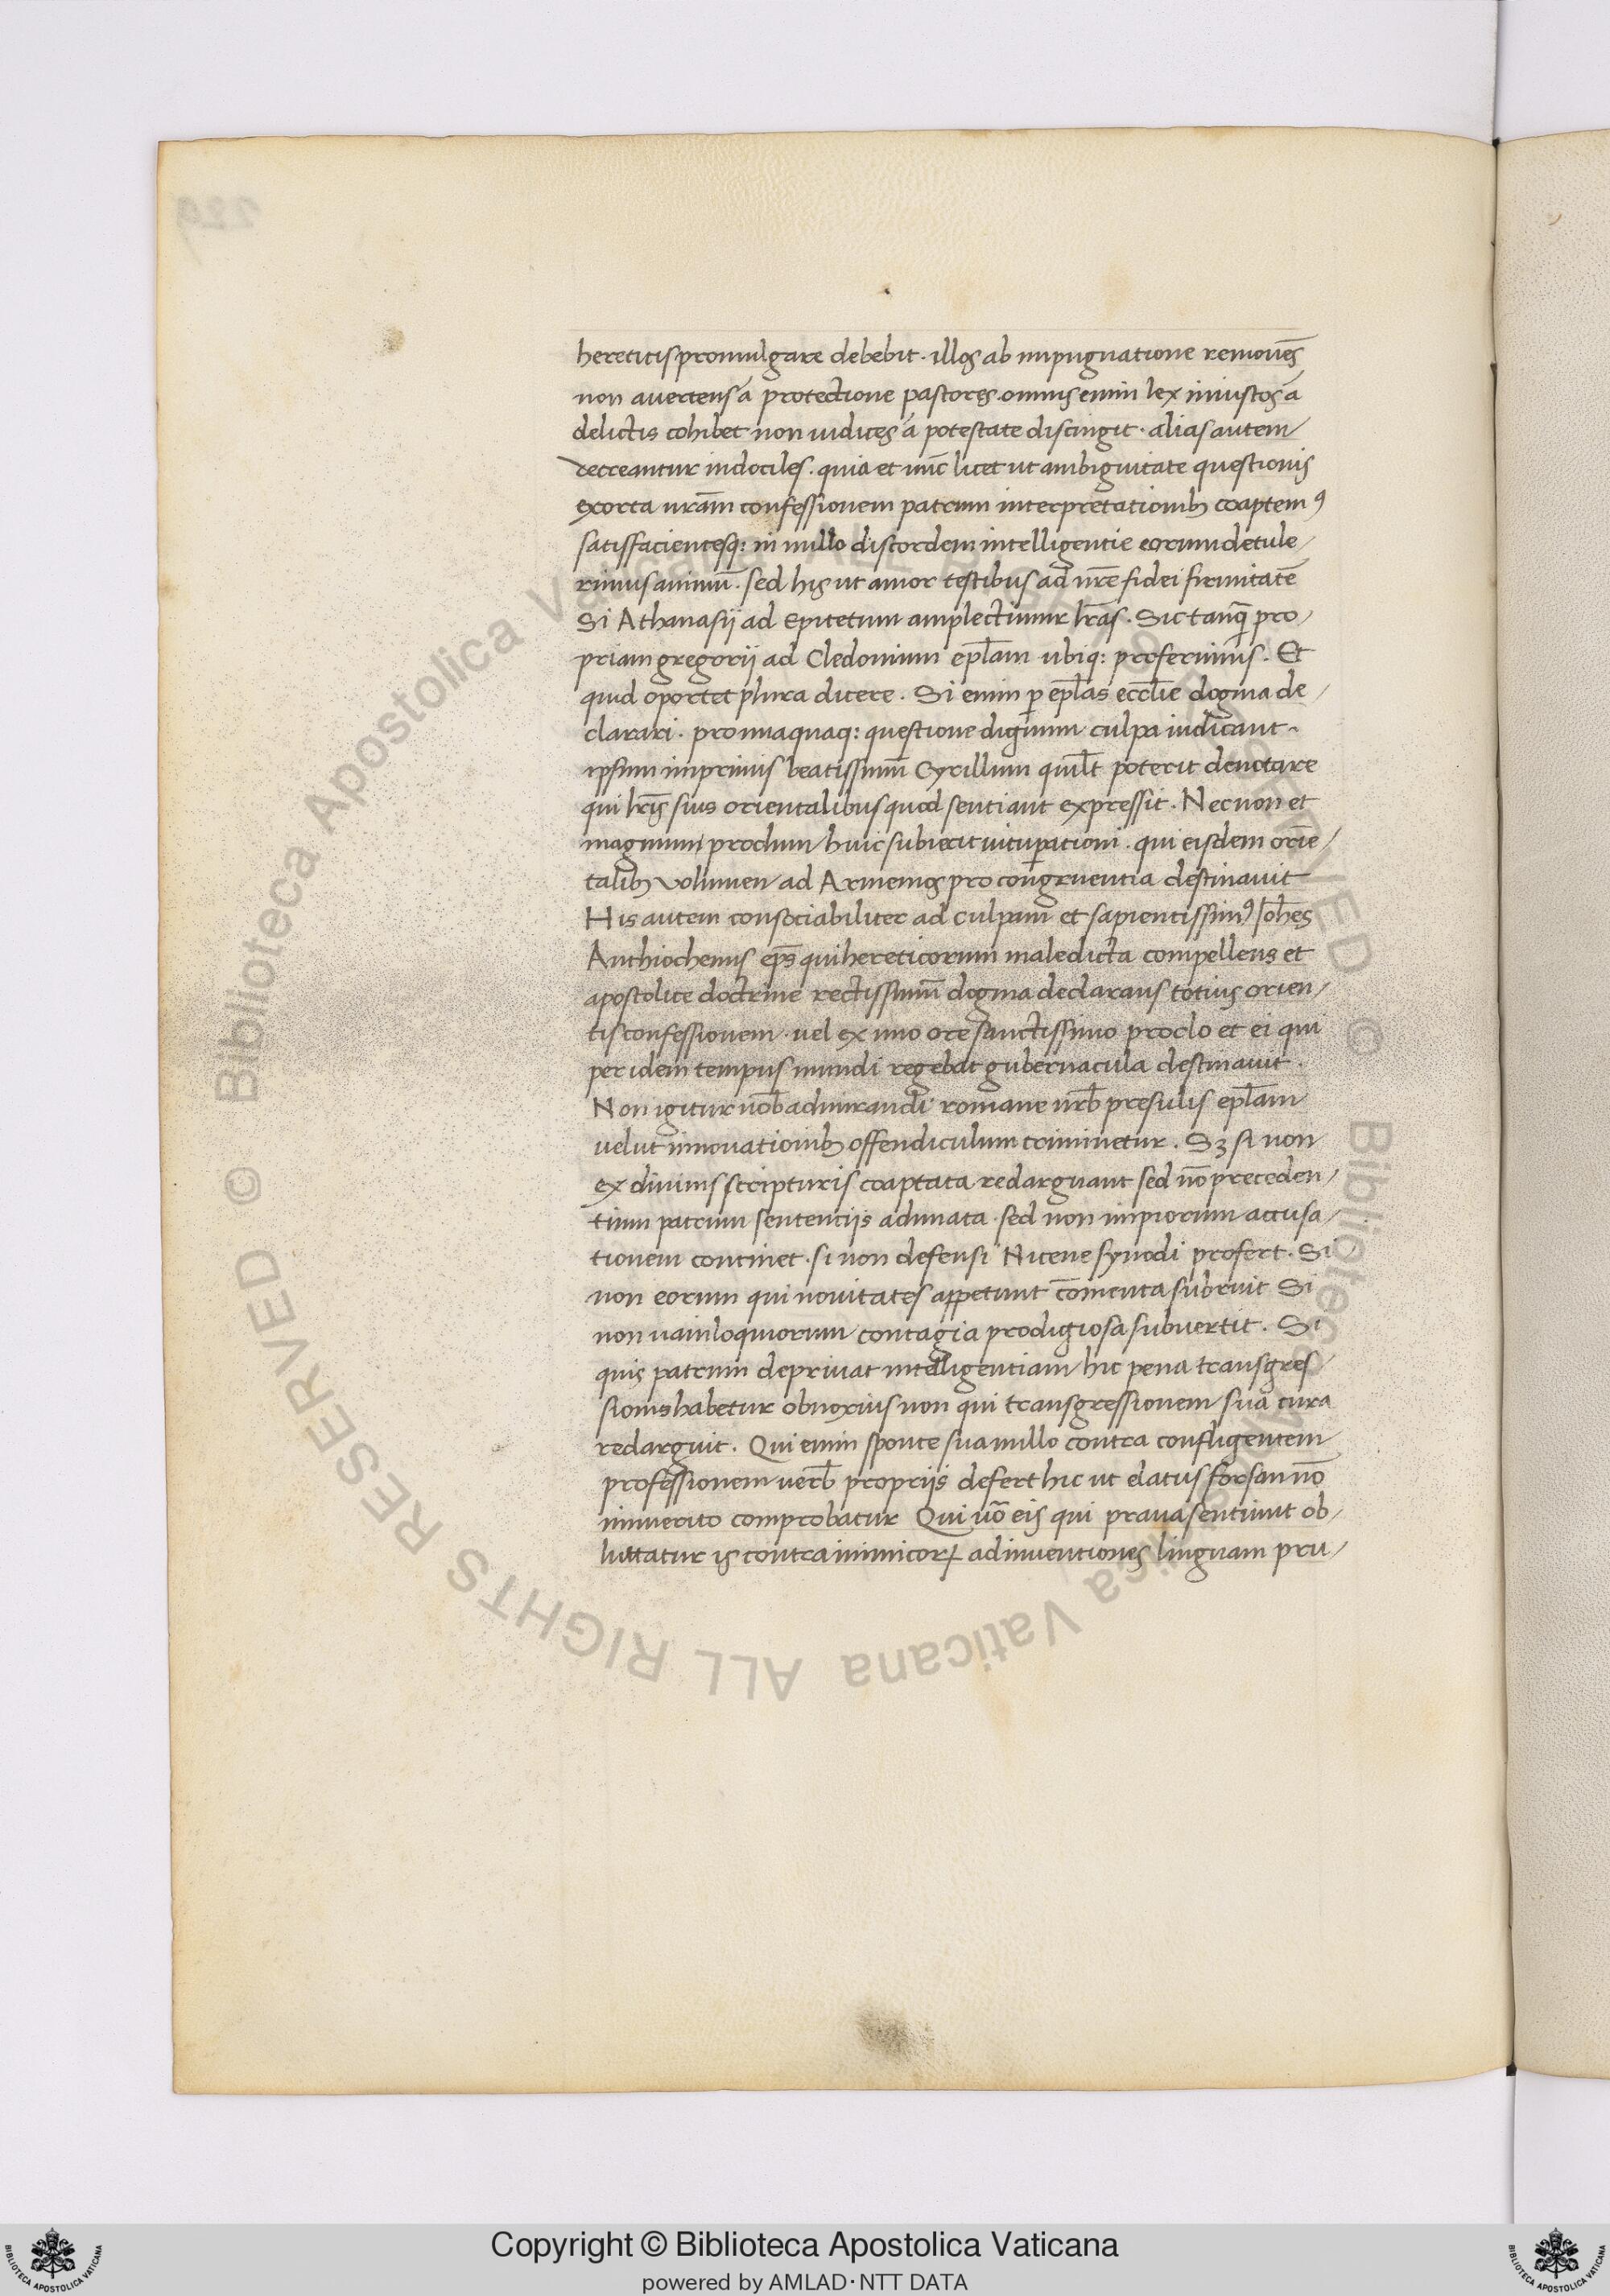 hereticis promulgare debebit. illos ab impugnatione remouēs
non auertens á protectione pastores. omnis enim lex iniustos á
delictis cohibet non iudices á potestate discingit. alias autem
recreantur indociles. quia et nūc licet ut ambiguitate questionis
exorta nr̄am confessionem patrum interpretationibꝫ coaptemꝰ
satisfacientesq: in nullo discordem intelligentie eorum detule/
rimus animū. sed his ut amor testibus ad nr̄e fidei firmitatē
Si Athanasij ad Epitetum amplectimur lr̄as. Sic tanq̄ pro/
priam gregorij ad Cledonium ep̄lam ubiq: proferimus. Et
quid oportet plura dicere. Si enim ꝑ ep̄las eccl̄ie dogma de/
clarari. pro unaquaq: questione dignum culpa iudicant.
ipsum imprimis beatissimū Cyrillum quil̄t poterit denotare
qui lr̄is suis orientalibus quod sentiant expressit. Necnon et
magnum proclum huic subiecit uituꝑationi. qui eisdem oriē/
talibꝫ volumen ad Armenos pro congruentia destinauit
His autem consociabiliter ad culpam et sapientissimꝰ Ioh̄es
Anthiochenus ep̄s qui hereticorum maledicta compellens et
apostolice doctrine rectissimū dogma declarans totius orien/
tis confessionem. vel ex uno ore sanctissimo proclo et ei qui
per idem tempus mundi regebat gubernacula destinauit.
Non igitur nob̄ admirandi romane urb̄ presulis ep̄lam
velut innovationibꝫ offendiculum criminetur. Sꝫ si non
ex diuinis scripturis coaptata redarguant sed nō preceden/
tium patrum sentencijs adunata. sed non impiorum accusa/
tionem continet. si non defensi Nicene synodi profert. Si
non eorum qui nouitates appetunt cōmenta subruit Si
non uainloquiorum contagia prodigiosa subuertit. Si
quis patrum depriuat intelligentiam hic pena transgres/
sionis habetur obnoxius non qui transgressionem sua cura
redarguit. Qui enim sponte sua nullo contra confligentem
professionem uerb̄ proprijs defert hic ut elatus forsan nō
inmerito comprobatur Qui uō eis qui praua sentiunt ob/
luttatur is contra inimicoꝝ adinuentiones linguam pru/
229
Biblioteca Apostolica Vaticana ALL RIGHTS RESERVED © Biblioteca Apostolica Vaticana ALL RIGHTS RESERVED ©
Copyright © Biblioteca Apostolica Vaticana
powered by AMLAD·NTT DATA
BIBLIOTECA APOSTOLICA VATICANA
BIBLIOTECA APOSTOLICA VATICANA